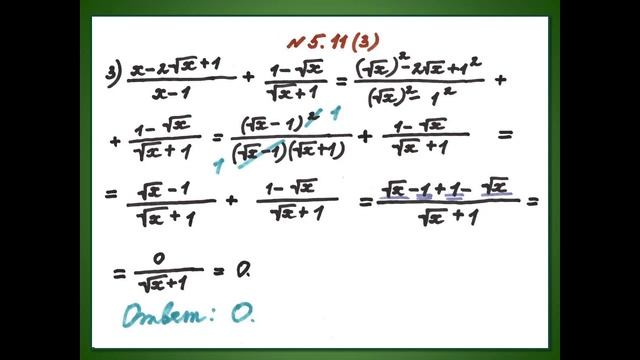 № 5.11(3)
3) (x-2√x+1)/(x-1) + (1-√x)/(√x+1) = ((√x)²-2√x+1²)/((√x)²-1²) +
+ (1-√x)/(√x+1) = (√x-1)²/((√x-1)(√x+1)) + (1-√x)/(√x+1) =
= (√x-1)/(√x+1) + (1-√x)/(√x+1) = (√x-1+1-√x)/(√x+1) =
= 0/(√x+1) = 0.
Ответ: 0.